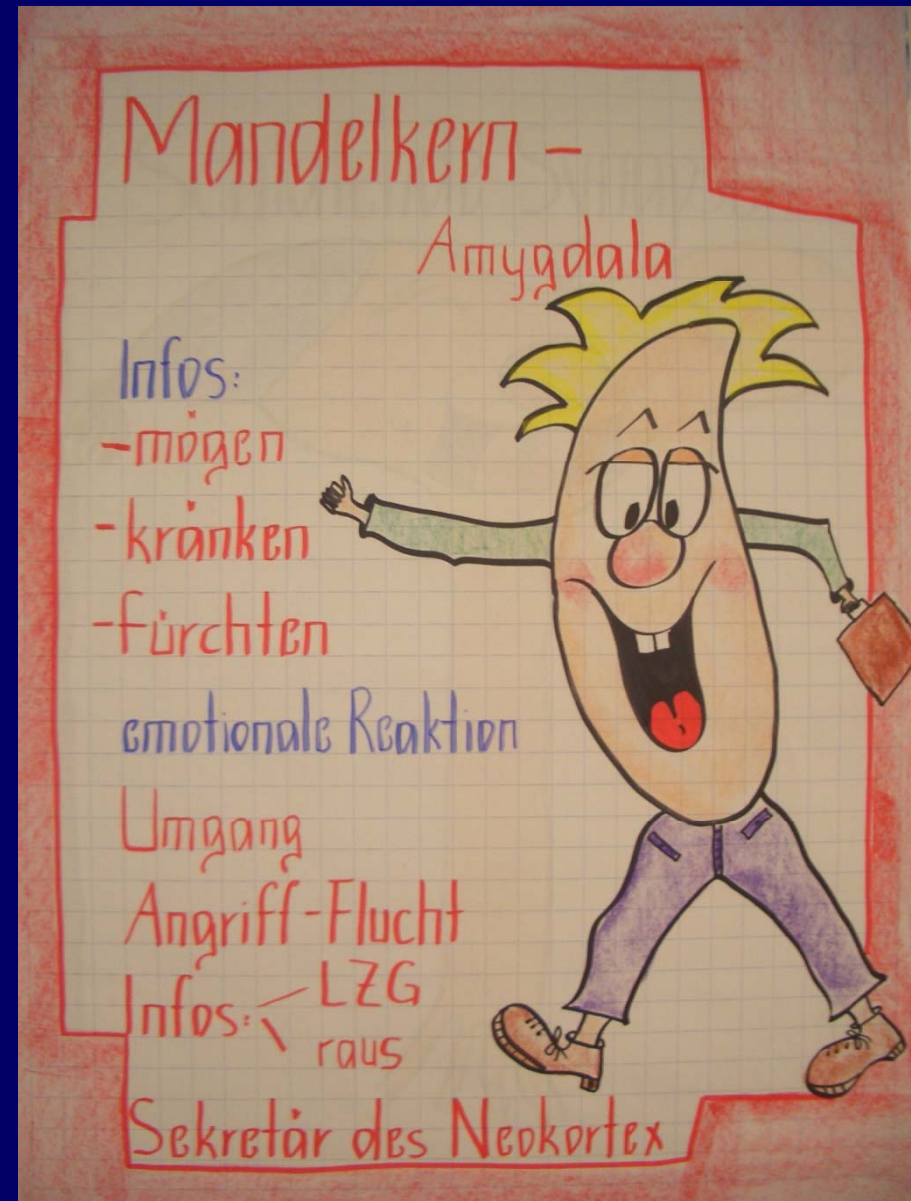 Mandelkern -
Amygdala
Infos:
-mögen
-kränken
-fürchten
emotionale Reaktion
Umgang
Angriff-Flucht
Infos: LZG
raus
Sekretär des Neokortex